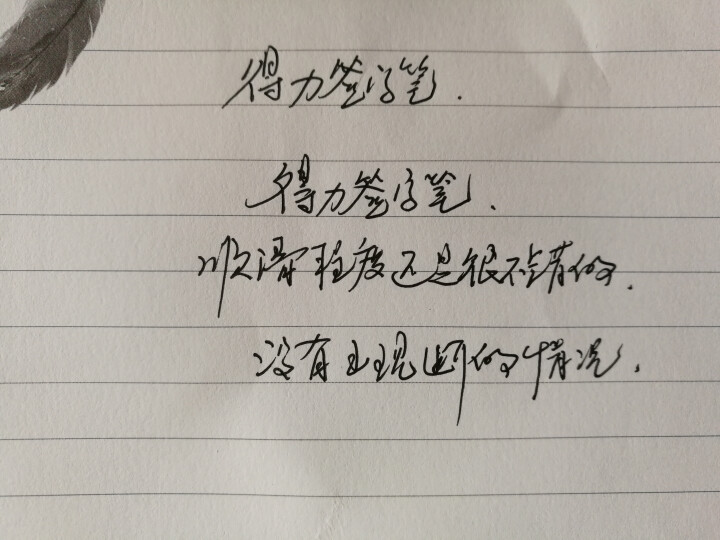 得力签字笔.
得力签字笔.
顺滑程度还是很不错的.
没有出现断的情况.